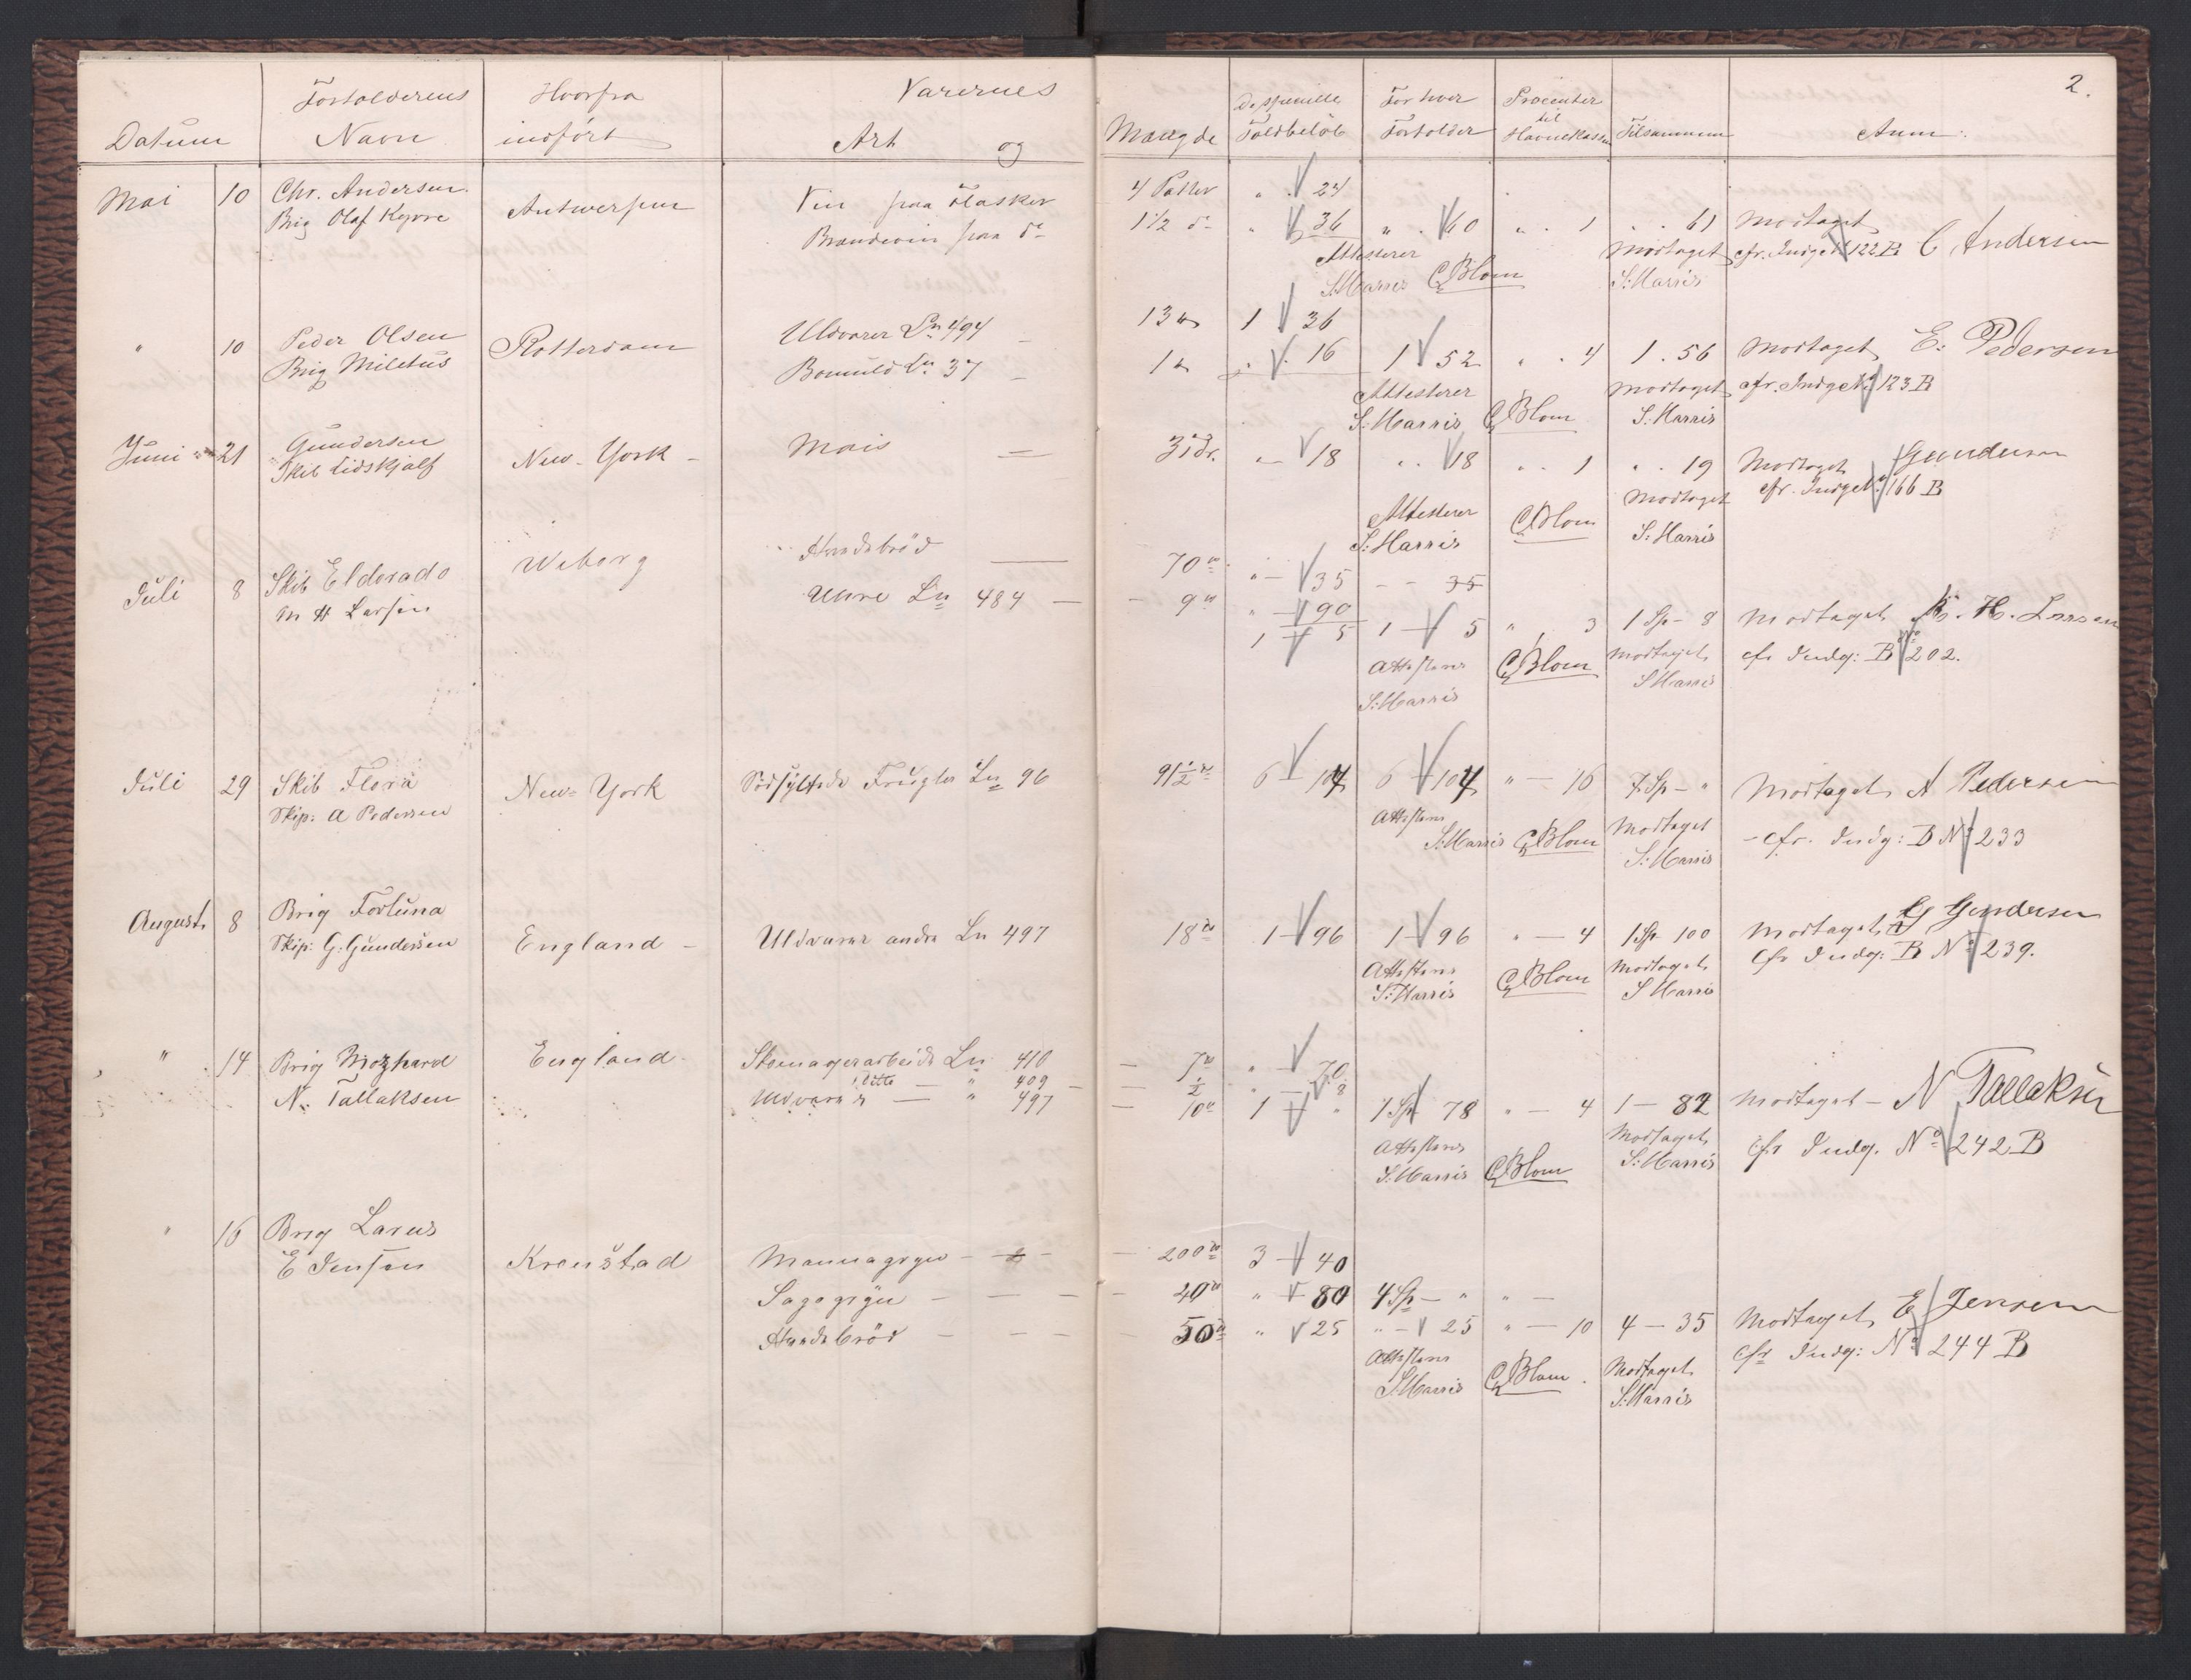 2.
Datum
Fortolderens Navn
Hvorfra indført
Varernes Art og Mængde
De specielle Toldbeløb
For hver Fortolder
Procenter til Havnekassen
Tilsammen
Anm:
Mai 10 Chr. Andersen Antwerpen Vin paa Flasker 4 Potter " . 24
Brig Olaf Kyrre Brændeviin paa do 1 1/2 do " 36 " . 60 " . 1 " . 61 Modtaget C Andersen
Attesterer Modtaget cfr. Indg. No 122 B
S. Harris C Blom S. Harris
" 10 Peder Olsen Rotterdam Uldvarer Ln 494 13 1 36
Brig Miletus Bomuld Ln 37 1 " . 16 1 52 " . 4 1 . 56 Modtaget E: Pedersen
Attesterer Modtaget cfr. Indg. No 123 B
S: Harris C Blom S. Harris
Juni 21 Gundersen New-York - Mais 3 " 18 " . 18 " . 1 " . 19 Modtaget Gundersen
Skib Lidskjalf Modtaget cfr. Indg. No 166 B
Attesterer C Blom S: Harris
S: Harris
Juli 8 Skib Eldorado Wiborg Hardebrød 70 " - 35 - - 35
M H Larsen Uhre Ln 484 - 9 " - 90
1 - 5 1 - 5 " 3 1 Sp - 8 Modtaget M. H. Larsen
C Blom Modtaget cfr Indg: B No 202.
S. Harris S Harris
Juli 29 Skib Flora New-York Sødsyltede Frugter Ln 96 91 1/2 6 - 104 6 - 104 " - 16 7 Sp - " Modtaget A Pedersen
Skip: A Pedersen Modtaget - cfr. Indg: B No 233
S. Harris C Blom S: Harris
August 8 Brig Fortuna England - Uldvarer andre Ln 497 18 1 - 96 1 - 96 " - 4 1 Sp 100 Modtaget G Gundersen
Skip: G. Gundersen C Blom Modtaget Cfr Indg: B No 239.
S: Harris S Harris
" 14 Brig England - Skomagerarbeide Ln 410 - 7 " - 70
N. Tallaksen Ditto - " 409 - 1/2 " - 8
Uldvarer - " 497 - 10 1 - " 1 Sp 78 " - 4 1 - 82 Modtaget - N Tallaksen
C Blom Modtaget Cfr Indg. No 242 B
S. Harris S: Harris
" 16 Brig Larus Kronstad Mannagryn - - 200 3 - 40
E Jensen Sagogryn - - - 40 " - 80 4 Sp - " " -
Hardebrød - - - 50 " 25 " - 25 " - 10 4 - 35 Modtaget E Jensen
C Blom Modtaget Cfr Indg: No 244 B
S. Harris S. Harris